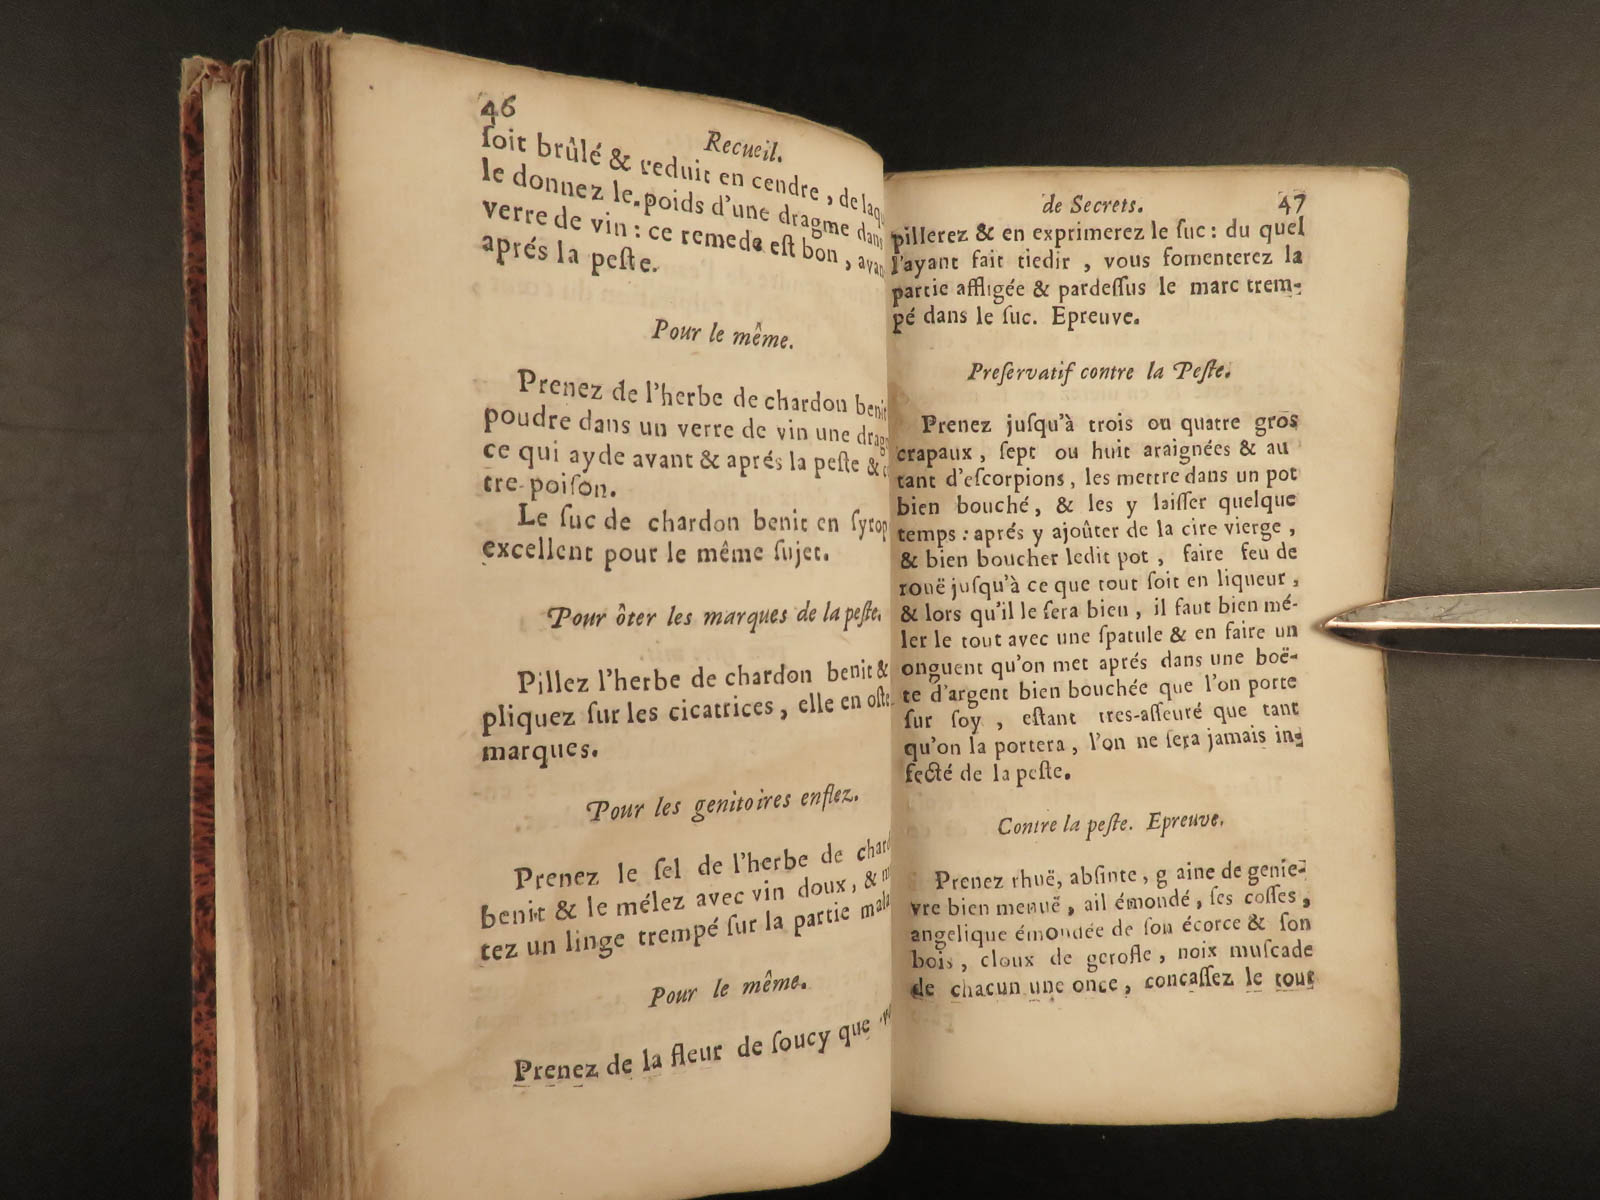 46
Recueil.
ſoit brûlé & reduit en cendre, de laq
le donnez le poids d'une dragme dans
verre de vin : ce remede eſt bon, avan
aprés la peſte.
Pour le même.
Prenez de l'herbe de chardon beni
poudre dans un verre de vin une drag
ce qui ayde avant & aprés la peſte &
tre-poiſon.
Le ſuc de chardon benit en ſyrop
excellent pour le même ſujet.
Pour ôter les marques de la peſte.
Pillez l'herbe de chardon benit &
pliquez ſur les cicatrices, elle en oſte
marques.
Pour les genitoires enflez.
Prenez le ſel de l'herbe de chard
benit & le mélez avec vin doux, &
tez un linge trempé ſur la partie mala
Pour le même.
Prenez de la fleur de ſoucy que
de Secrets. 47
pillerez & en exprimerez le ſuc : du quel
l'ayant fait tiedir, vous fomenterez la
partie affligée & pardeſſus le marc trem-
pé dans le ſuc. Epreuve.
Preſervatif contre la Peſte.
Prenez juſqu'à trois ou quatre gros
crapaux, ſept ou huit araignées & au
tant d'eſcorpions, les mettre dans un pot
bien bouché, & les y laiſſer quelque
temps : aprés y ajoûter de la cire vierge,
& bien boucher ledit pot, faire feu de
rouë juſqu'à ce que tout ſoit en liqueur,
& lors qu'il le ſera bien, il faut bien mé-
ler le tout avec une ſpatule & en faire un
onguent qu'on met aprés dans une boë-
te d'argent bien bouchée que l'on porte
ſur ſoy, eſtant tres-aſſeuré que tant
qu'on la portera, l'on ne ſera jamais in-
fecté de la peſte.
Contre la peſte. Epreuve.
Prenez rhuë, abſinte, g aine de genie-
vre bien menuë, ail émondé, ſes coſſes,
angelique émondée de ſon écorce & ſon
bois, cloux de gerofle, noix muſcade
de chacun une once, concaſſez le tout